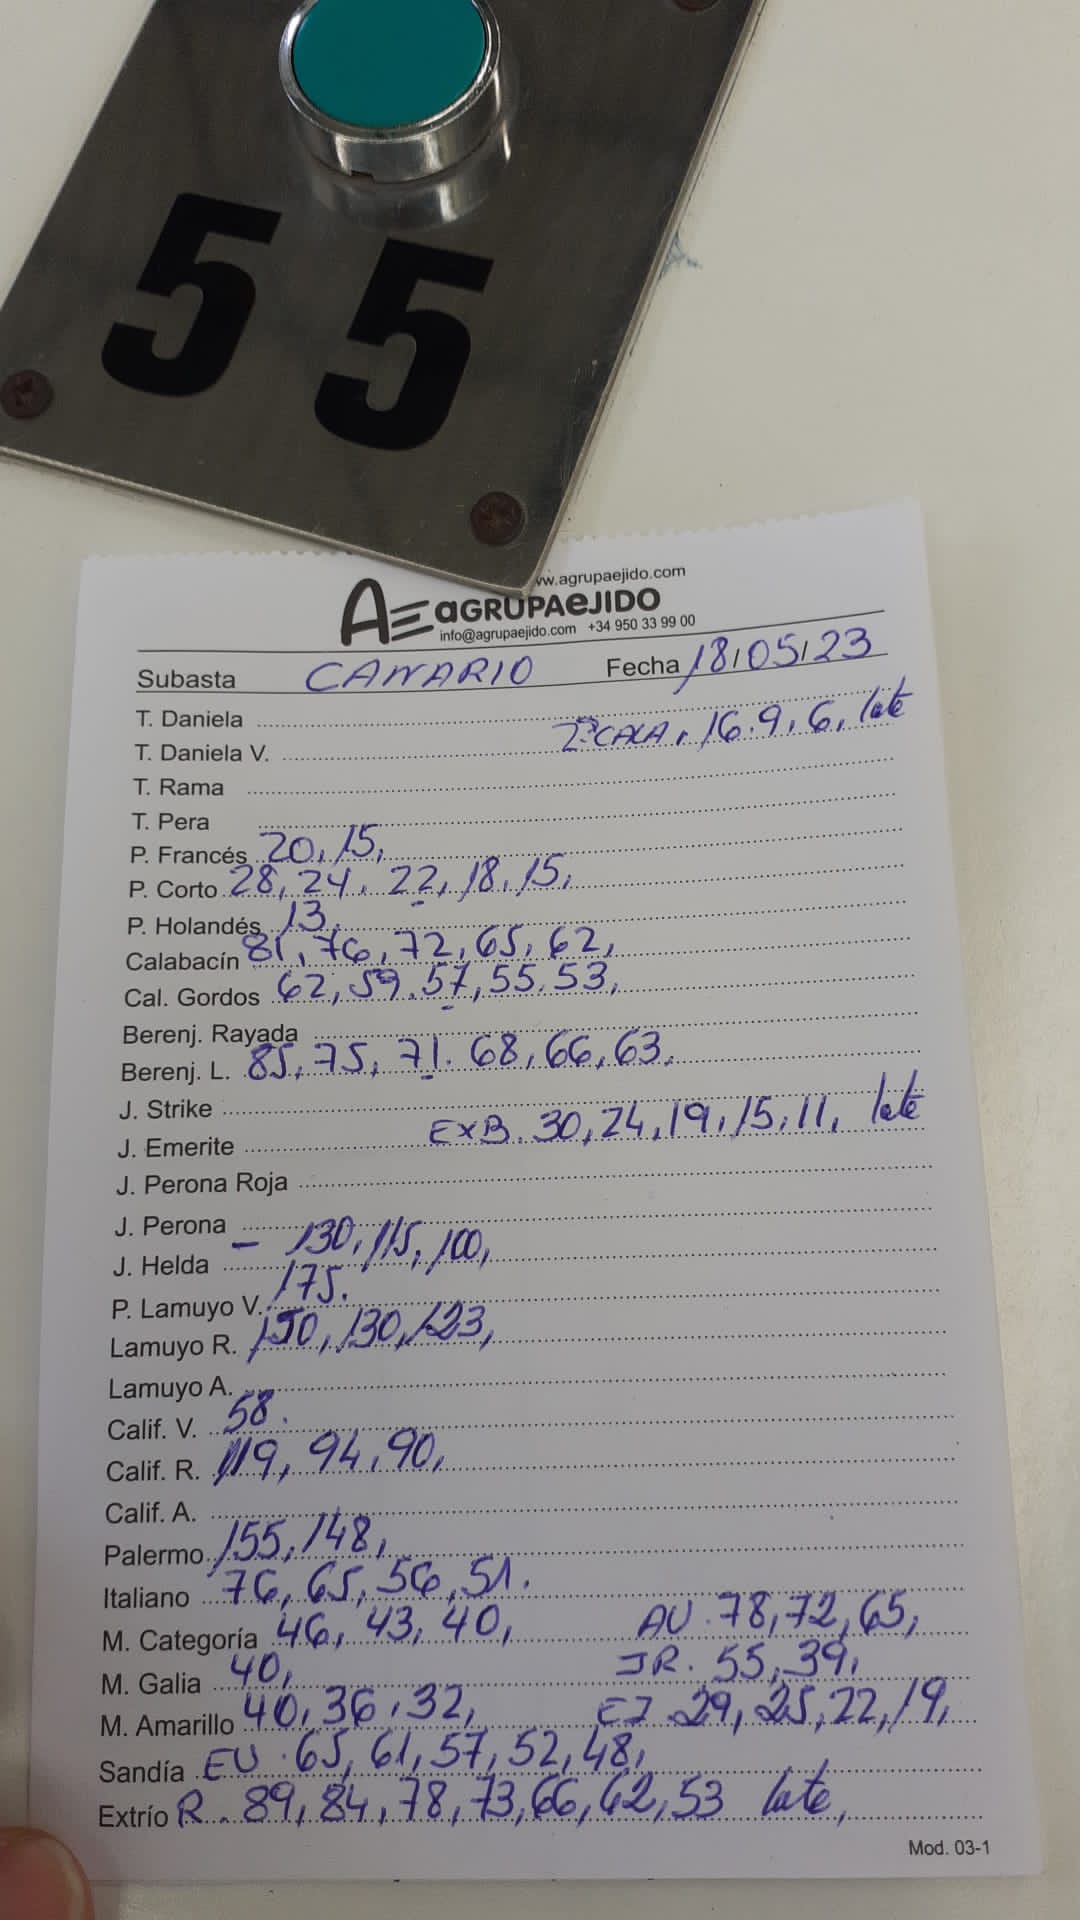 55
www.agrupaejido.com
AE aGRUPAeJIDO
info@agrupaejido.com +34 950 33 99 00
Subasta CANARIO Fecha 18/05/23
T. Daniela
T. Daniela V. 2ª CALA, 16.9, 6, late
T. Rama
T. Pera
P. Francés 20, 15,
P. Corto 28, 24, 22, 18, 15,
P. Holandés 13.
Calabacín 81, 76, 72, 65, 62,
Cal. Gordos 62, 59, 57, 55, 53,
Berenj. Rayada
Berenj. L. 85, 75, 71. 68, 66, 63.
J. Strike
J. Emerite EXB. 30, 24, 19, 15, 11, late
J. Perona Roja
J. Perona
J. Helda - 130, 115, 100,
P. Lamuyo V. 175.
Lamuyo R. 150, 130, 123,
Lamuyo A.
Calif. V. 58.
Calif. R. 119, 94, 90,
Calif. A.
Palermo 155, 148,
Italiano 76, 65, 56, 51.
M. Categoría 46, 43, 40, AU. 78, 72, 65,
M. Galia 40, JR. 55, 39,
M. Amarillo 40, 36, 32, EJ 29, 25, 22, 19,
Sandía EU. 65, 61, 57, 52, 48,
Extrío R. 89, 84, 78, 73, 66, 62, 53 late,
Mod. 03-1